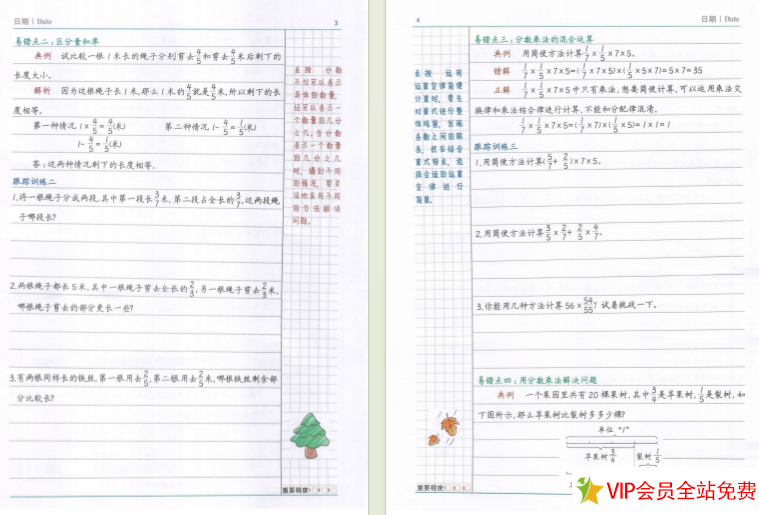 日期 | Date
3
易错点二：区分量和率
典例 试比较一根1米长的绳子分别剪去4/5和剪去4/5米后剩下的
长度大小。
解析 因为这根绳子长1米，那么1米的4/5就是4/5米，所以剩下的长
度相等。
第一种情况 1×4/5=4/5(米) 第二种情况 1-4/5=1/5(米)
1-4/5=1/5(米)
答：这两种情况剩下的长度相等。
跟踪训练二
1.将一根绳子分成两段，其中第一段长3/7米，第二段占全长的3/7，这两段绳
子哪段长？
2.两根绳子都长5米，其中一根绳子剪去全长的2/3，另一根绳子剪去2/3米，
哪根绳子剪去的部分更长一些？
3.有两根同样长的铁丝，第一根用去2/5，第二根用去2/5米，哪根铁丝剩余部
分比较长？
点拨 分数
不仅可以表示
具体的数量，
还可以表示一
个数量的几分
之几。当分数
表示一个数量
的几分之几
时，遇到不同
的情况，要灵
活地采用不同
的方法解决
问题。
重要程度
4
日期 | Date
易错点三：分数乘法的混合运算
典例 用简便方法计算1/7×1/5×7×5。
错解 1/7×1/5×7×5=(1/7×7×5)×(1/5×5×7)=5×7=35
正解 1/7×1/5×7×5中只有乘法，想要简便计算，可以运用乘法交
换律和乘法结合律进行计算，不能和分配律混淆。
1/7×1/5×7×5=(1/7×7)×(1/5×5)=1×1=1
跟踪训练三
1.用简便方法计算(5/7+2/5)×7×5。
2.用简便方法计算3/5×2/7+2/5×4/7。
3.你能用几种方法计算56×54/55？试着挑战一下。
易错点四：用分数乘法解决问题
典例 一个果园里共有20棵果树，其中3/4是苹果树，1/5是梨树，如
下图所示，那么苹果树比梨树多多少棵？
单位“1”
苹果树3/4 梨树1/5
点拨 运用
运算定律简便
计算时，要先
对算式进行整
体观察，发现
各数之间的联
系，然后结合
算式特点，选
择合适的运算
定律进行
简算。
重要程度
VIP会员全站免费